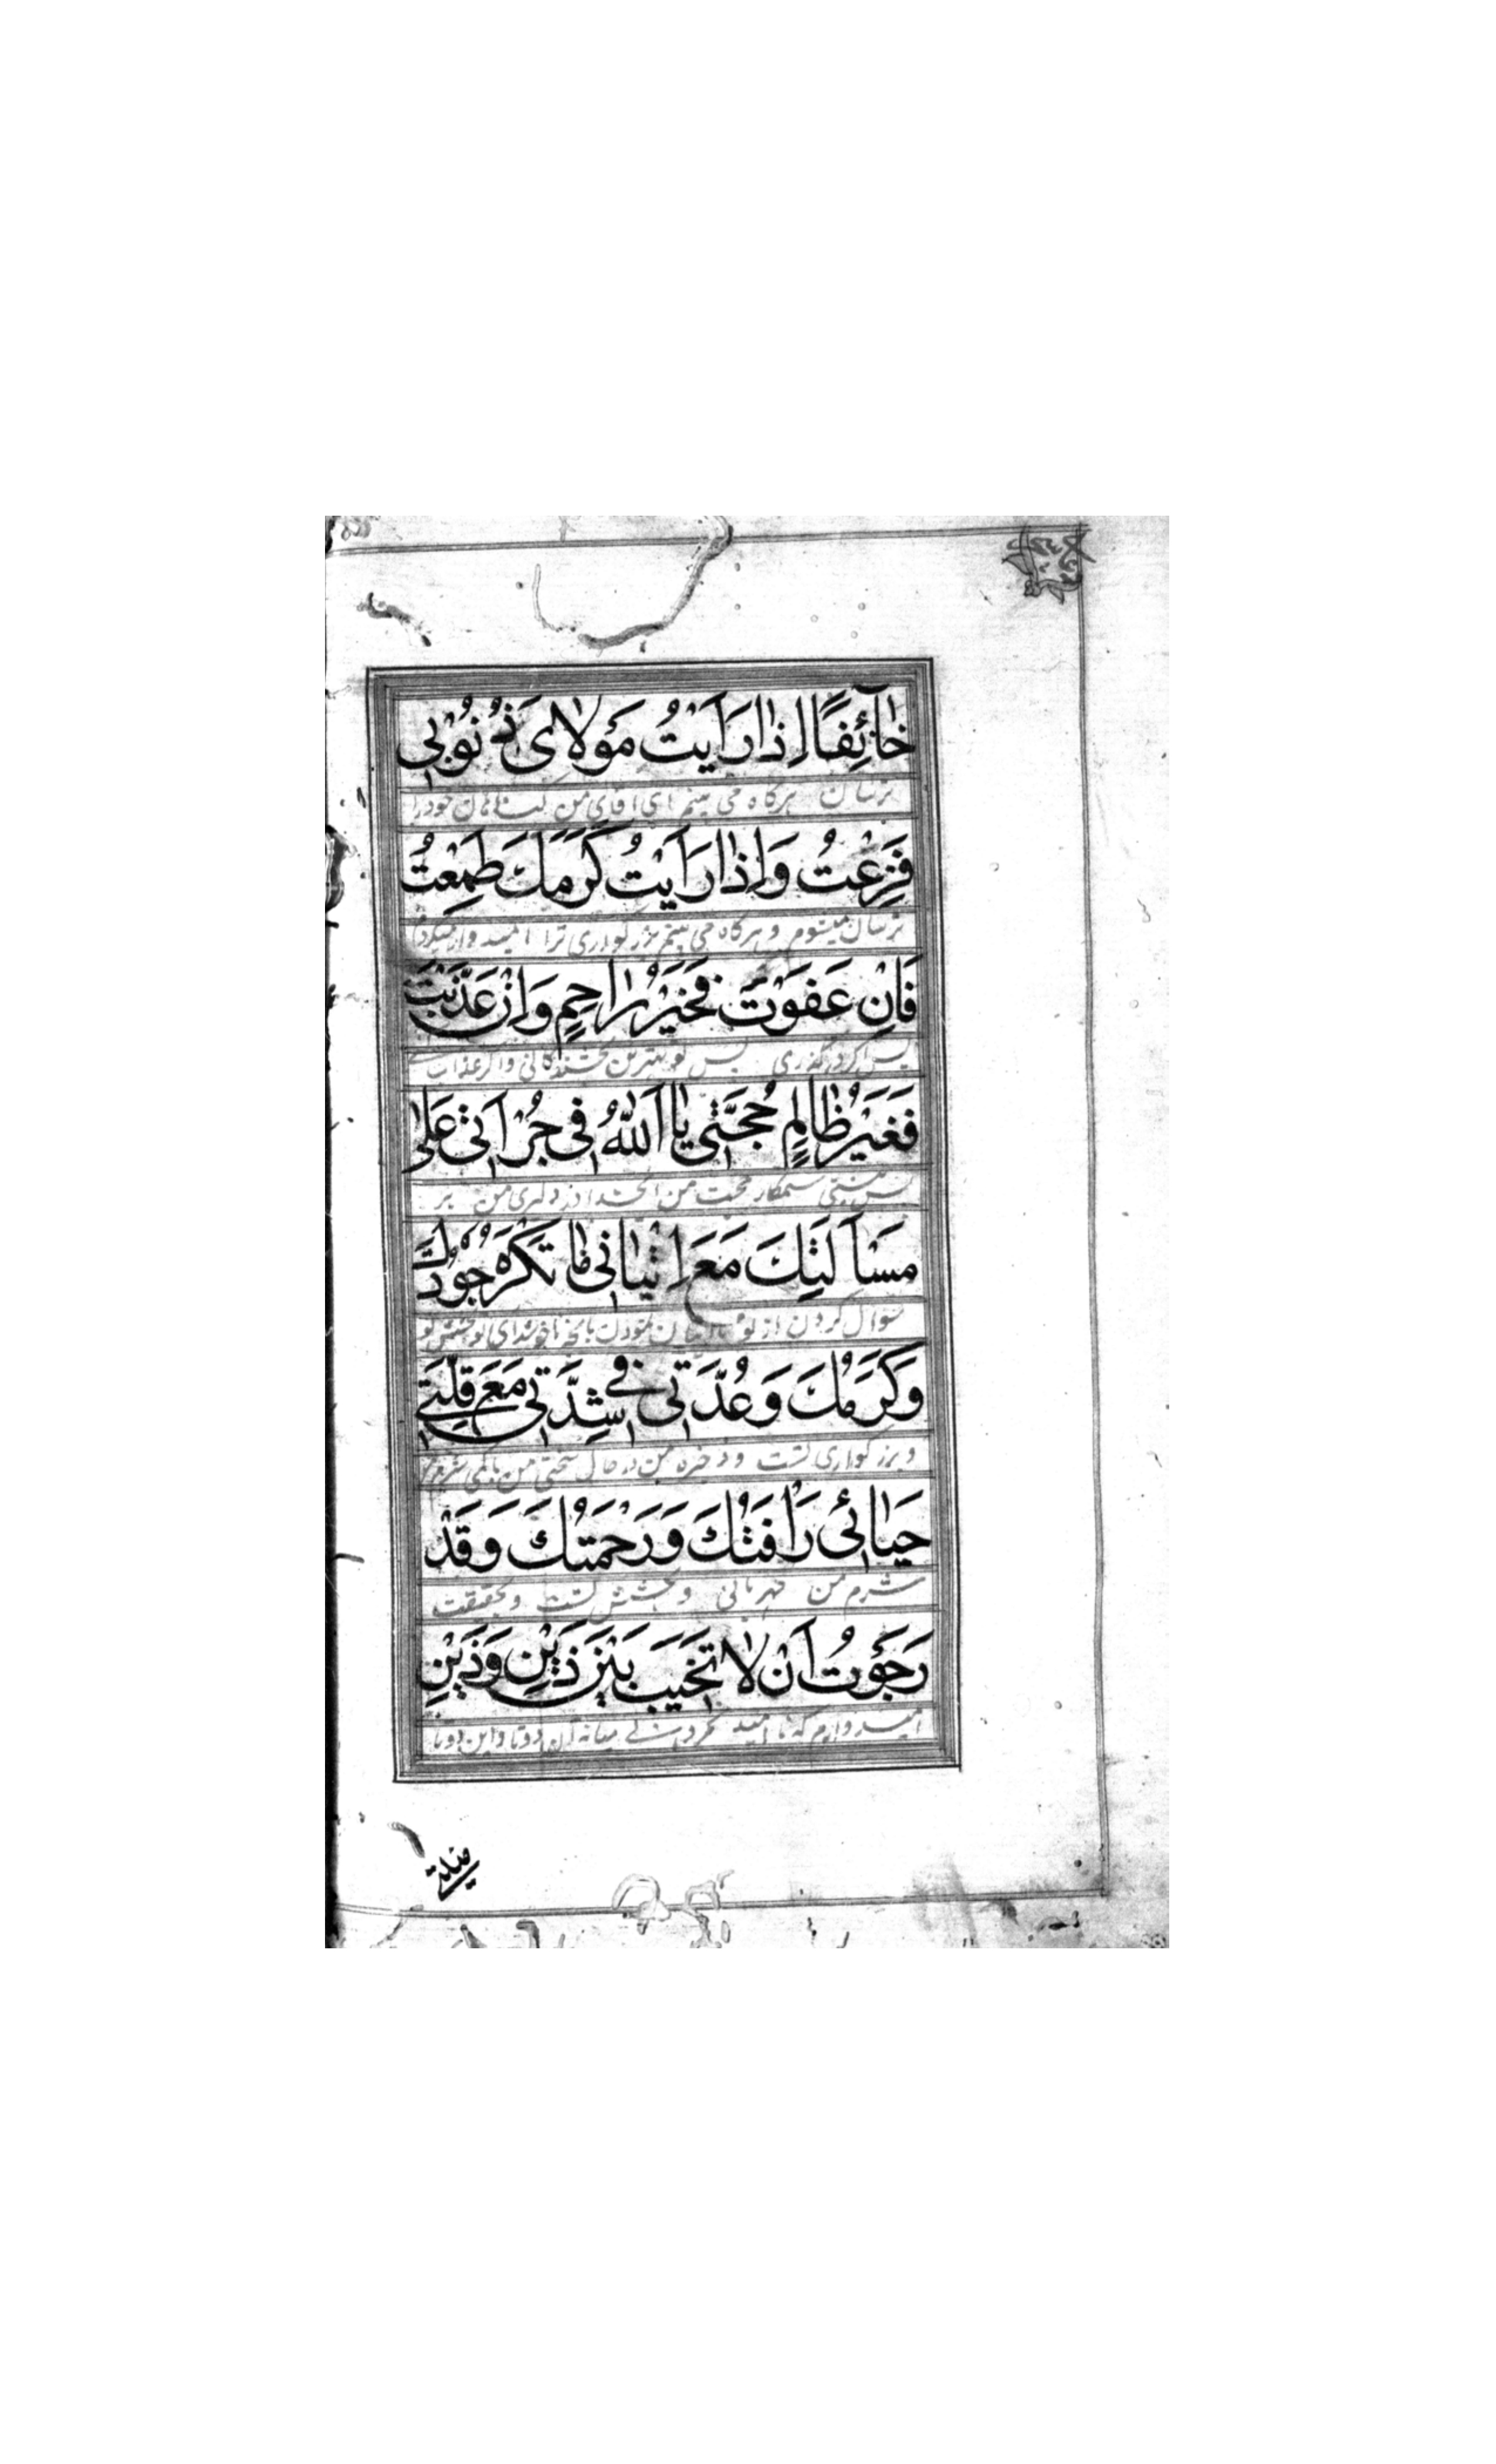 خٰآئِفًا اِذٰا رَاَیْتُ مَوْلٰایَ ذُنُوْبی
ترسان هرگاه می بینم ای اقای من کناهان خود را
فَزِعْتُ وَاِذٰا رَاَیْتُ كَرَمَكَ طَمِعْتُ
ترسان میشوم و هرگاه می بینم بزرگواری ترا امیدوار میکردم
فَاِنْ عَفَوْتَ فَخَیْرُ رٰاحِمٍ وَاِنْ عَذَّبْتَ
پس اگر درگذری پس تو بهترین بخشندگانی و اگر عذاب
فَغَیْرُ ظٰالِمٍ حُجَّتی یٰا اَللّٰهُ فی جُرْاَتی عَلیٰ
پس نیستی ستمکار حجت من ایخدا در دلیری من بر
مَسْاَلَتِكَ مَعَ اِتْیٰانی مٰا تَكْرَهُ جُوْدُكَ
سوال کردن از تو
وَكَرَمُكَ وَعُدَّتی فی شِدَّتی مَعَ قِلَّةِ
و بزرکواری تست و ذخیره من در حال سختی من با کمی شرم
حَیٰائی رَاْفَتُكَ وَرَحْمَتُكَ وَقَدْ
شرم من مهربانی و بخشش تست و بحقیقت
رَجَوْتُ اَنْ لٰا تَخیبَ بَیْنَ ذَیْنِ وَذَیْنِ
امیدوارم که نا امید نکردد میانه این دوتا و این دوتا